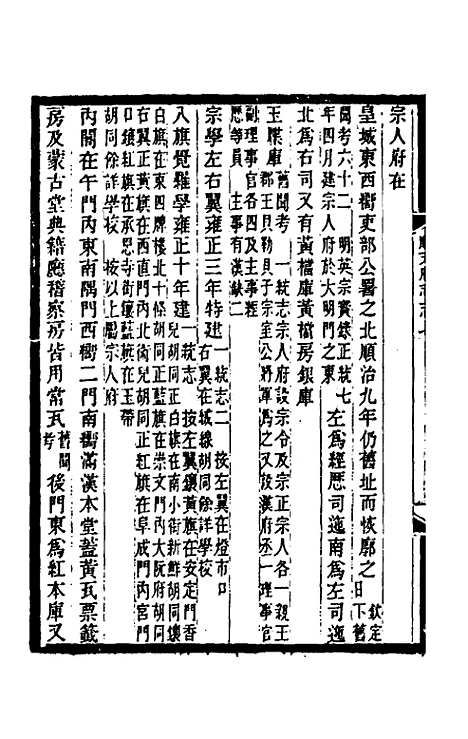 宗人府在
皇城東西嚮吏部公署之北順治九年仍舊址而恢廓之欽定日下舊
聞考六十二 明英宗實錄正統七年四月建宗人府於大明門之東 左為經歷司迤南為左司迤
北為右司又有黃檔庫黃檔房銀庫
玉牒庫舊聞考 一統志宗人府設宗令及宗正宗人各一親王郡王貝勒貝子宗室公將軍為之又設漢府丞一理事官
副理事官各四及主事經歷等員 主事有漢缺二
宗學左右翼雍正三年特建一統志二 按左翼在燈市口右翼在城緣胡同餘詳學校
八旗覺羅學雍正十年建一統志 按左翼鑲黃旗在安定門香兒胡同正白旗在南小街新鮮胡同鑲
白旗在東四牌樓北十條胡同正藍旗在崇文門內大阮府胡同右翼正黃旗在西直門內北衛兒胡同正紅旗在阜成門內宮門
口鑲紅旗在承恩寺街鑲藍旗在玉帶胡同餘詳學校 按以上屬宗人府
內閣在午門內東南隅門西嚮二門南嚮滿漢本堂蓋黃瓦票籤
房及蒙古堂典籍廳稽察房皆用常瓦舊聞考 後門東為紅本庫又